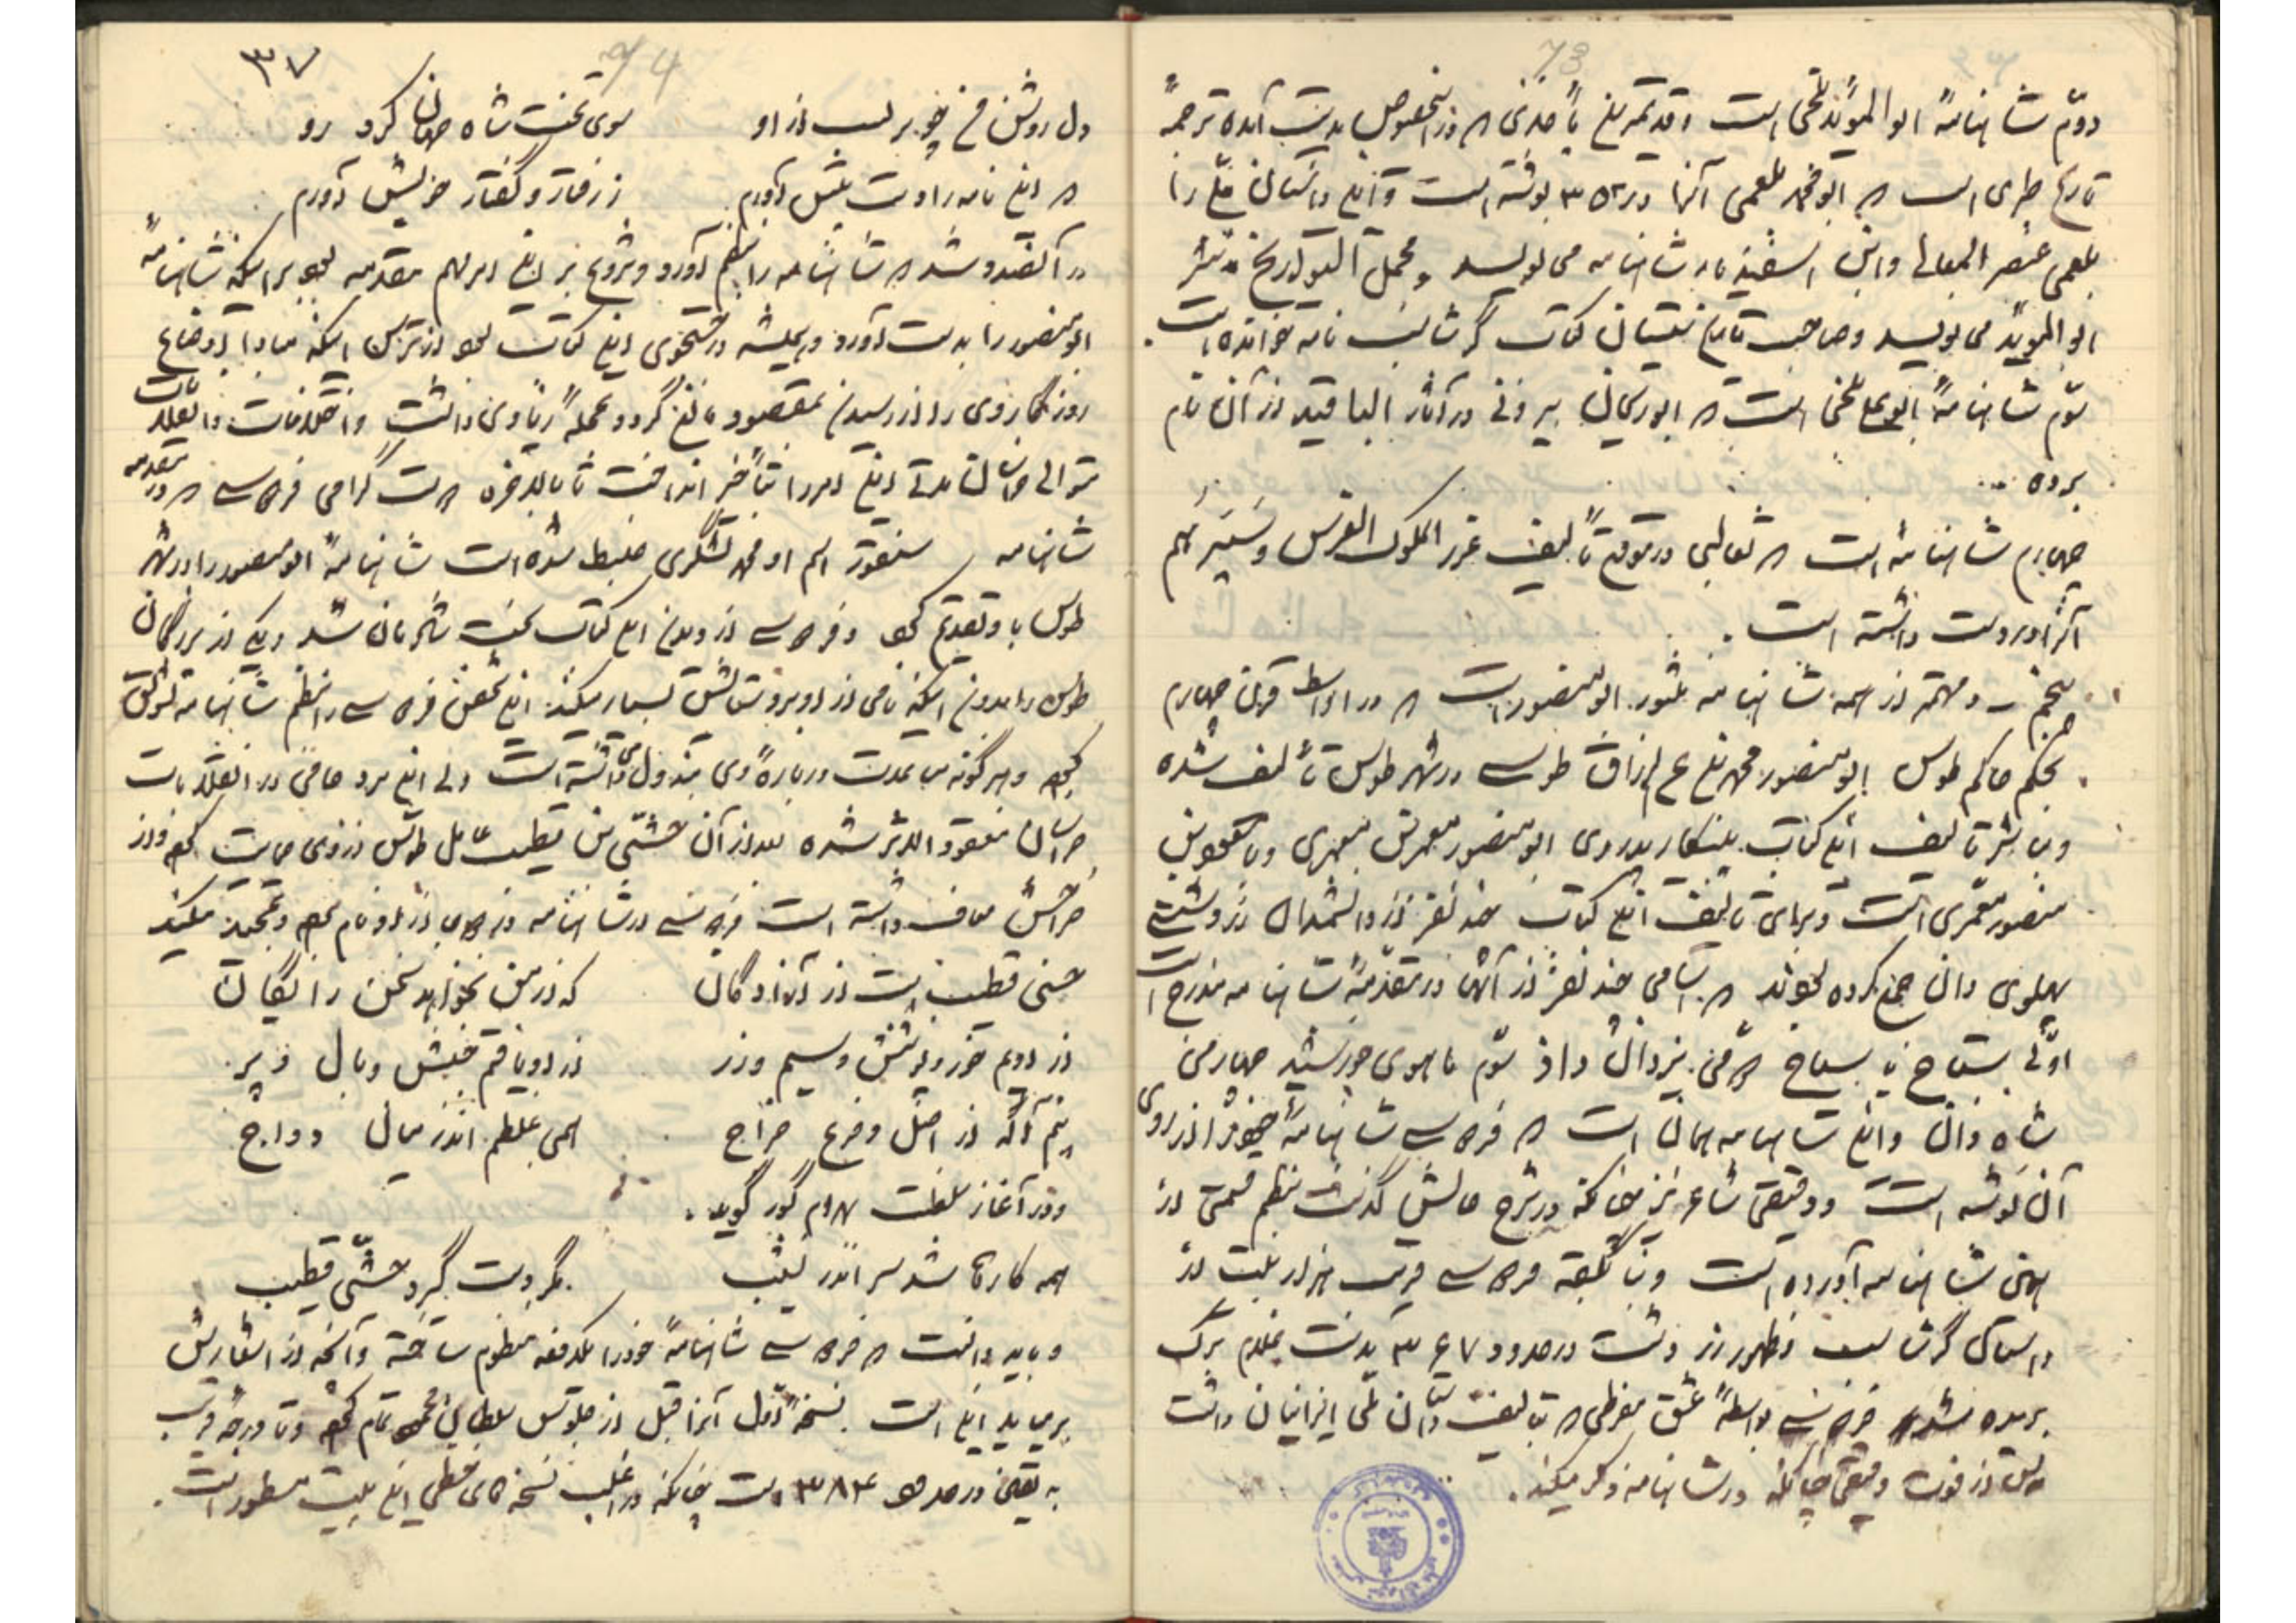 73
دوّم شاهنامهٔ ابوالمؤید بلخی است و قدیمترین مأخذی که در اینخصوص بدست آمده ترجمهٔ
تاریخ طبری است که ابومحمد بلعمی آنرا در ۳۵۲ نوشته است و این داستان ملی را
بلعمی عنصر المعالی و ابن اسفندیار شاهنامه می نویسد و مجمل التواریخ نثر
ابوالمؤید می نویسد و صاحب تاریخ سیستان کتاب گرشاسب نامه خوانده است.
سوّم شاهنامهٔ ابوعلی بلخی است که ابوریحان بیرونی در آثار الباقیه از آن نام
برده ...
چهارم شاهنامه است که ثعالبی در موقع تألیف غرر الملوک الفرس و سیرهم
آنرا در دست داشته است.
پنجم و مهمتر از همه شاهنامه منثور ابومنصوریست که در اواسط قرن چهارم
بحکم حاکم طوس ابومنصور محمد بن عبدالرزاق طوسی در شهر طوس تألیف شده
و مباشر تألیف این کتاب پیشکار پدر وی ابومنصور معمری
منصور معمّری است و برای تألیف این کتاب چند نفر از دانشمندان زردشتی
پهلوی دان جمع کرده بودند که اسامی چند نفر از آنها در مقدّمهٔ شاهنامه مندرج است
اوّلی سیاح یا سیاح دومی یزدان داد سوّم ماهوی خورشید چهارمین
شاه ذان و این شاهنامه همان است که فردوسی شاهنامهٔ خود را از روی
آن نوشته است و دقیقی شاعر نیز چنانکه در شرح حالش گذشت بنظم قسمتی از
همین شاهنامه آورده است و بنا بگفته فردوسی قریب هزار بیت از
داستان گرشاسب و ظهور زردشت در حدود ۳۶۷ بدست غلام ترک
بریده شد فردوسی بواسطهٔ عشق مفرطی که بتألیف داستان ملی ایرانیان داشت
پس از فوت دقیقی چنانکه در شاهنامه ذکر میکند.
74
۳۷
دل روشن من چو برگشت از او سوی تخت شاه جهان کرد رو
که این نامه را دست پیش آورم ز رفتار و گفتار خویش آورم
در آنصدد شد که شاهنامه را بنظم آورد و شروع بر این امر مهم مقدمه بود بر اینکه شاهنامهٔ
ابومنصور را بدست آورد و همیشه در جستجوی این کتاب بود از ترس اینکه مبادا اوضاع
روزگار وی را از رسیدن بمقصود مانع گردد عجلهٔ زیادی داشت و اختلافات و انقلابات
متوالی خراسان مدتی این امر را بتأخیر انداخت تا بالاخره دوست گرامی فردوسی که در مقدمه
شاهنامه اسم او محمد لشکری ضبط شده است شاهنامهٔ ابومنصور را در شهر
طوس باو تقدیم کرد و فردوسی از دیدن این کتاب سخت شادمان شد و یکی از بزرگان
طوس را بدون اینکه نامی از او ببرد ستایش بسیار میکند این شخص فردوسی را بنظم شاهنامه تشویق
کرده و هر گونه مساعدت در بارهٔ وی مبذول داشته است ولی این مرد حامی در انقلابات
خراسان مفقود الاثر شده بعد از آن حسین قطیب عامل طوس از وی حمایت کرد و از
خراجش معاف داشته است فردوسی در شاهنامه در دو جای از او نام برده و تمجید میکند
حسین قطیب است از آزادگان که از من نخواهد سخن رایگان
از اویم خور و پوشش و سیم و زر از او یافتم جنبش و بال و پر
نیم آگه از اصل و فرع خراج همی غلطم اندر میان دواج
و در آغاز سلطنت بهرام گور گوید.
همه کارها شد سر اندر نشیب مگر دست گیرد حسین قطیب
و باید دانست که فردوسی شاهنامهٔ خود را بکدفعه منظوم ساخته و آنچه از اشعارش
برمیاید این است. نسخهٔ اول آنرا قبل از جلوس سلطان محمود تمام کرد و تا درجهٔ قریب
به یقین در حدود ۳۸۴ است چنانکه در اغلب نسخه های خطی این بیت مسطور است.